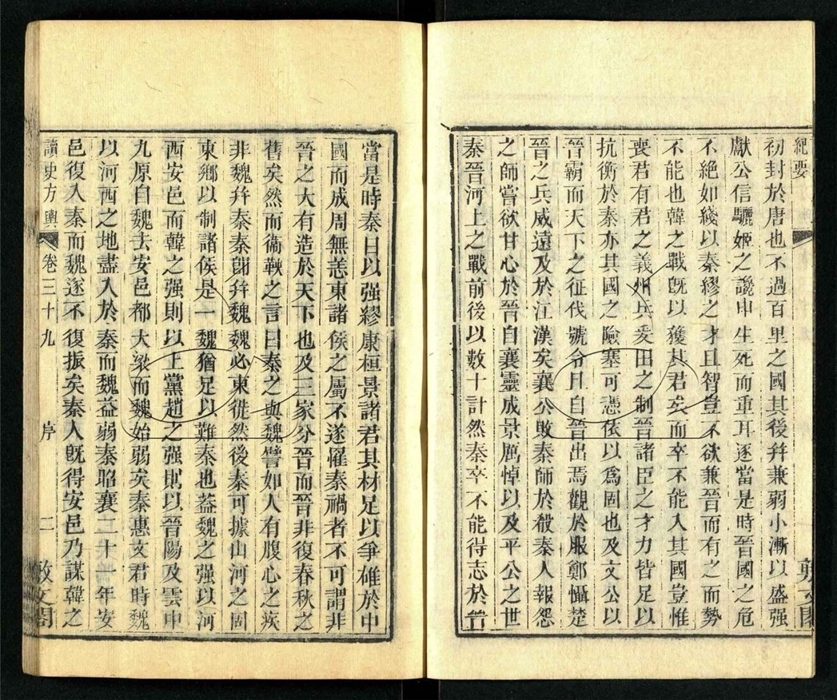 紀要
敷文閣
初封於唐也不過百里之國其後幷兼弱小漸以盛强
獻公信驪姬之讒申生死而重耳逐當是時晉國之危
不絕如綫以秦繆之才且智豈不欲兼晉而有之而勢
不能也韓之戰旣以獲其君矣而卒不能入其國豈惟
喪君有君之義州兵爰田之制晉諸臣之才力皆足以
抗衡於秦亦其國之險塞可憑依以爲固也及文公以
晉霸而天下之征伐號令日自晉出焉觀於服鄭懾楚
晉之兵威遠及於江漢矣襄公敗秦師於殽秦人報怨
之師嘗欲甘心於晉自襄靈成景厲悼以及平公之世
秦晉河上之戰前後以數十計然秦卒不能得志於晉
當是時秦日以强繆康桓景諸君其材足以爭雄於中
國而成周無恙東諸侯之屬不遂罹秦禍者不可謂非
晉之大有造於天下也及三家分晉而晉非復春秋之
舊矣然而衞鞅之言曰秦之與魏譬如人有腹心之疾
非魏幷秦秦卽幷魏魏必東徙然後秦可據山河之固
東鄉以制諸侯是一魏猶足以難秦也蓋魏之强以河
西安邑而韓之强則以上黨趙之强則以晉陽及雲中
九原自魏去安邑都大梁而魏始弱矣秦惠文君時魏
以河西之地盡入於秦而魏益弱秦昭襄二十一年安
邑復入秦而魏遂不復振矣秦人旣得安邑乃謀韓之
讀史方輿
卷三十九
序
二
敷文閣